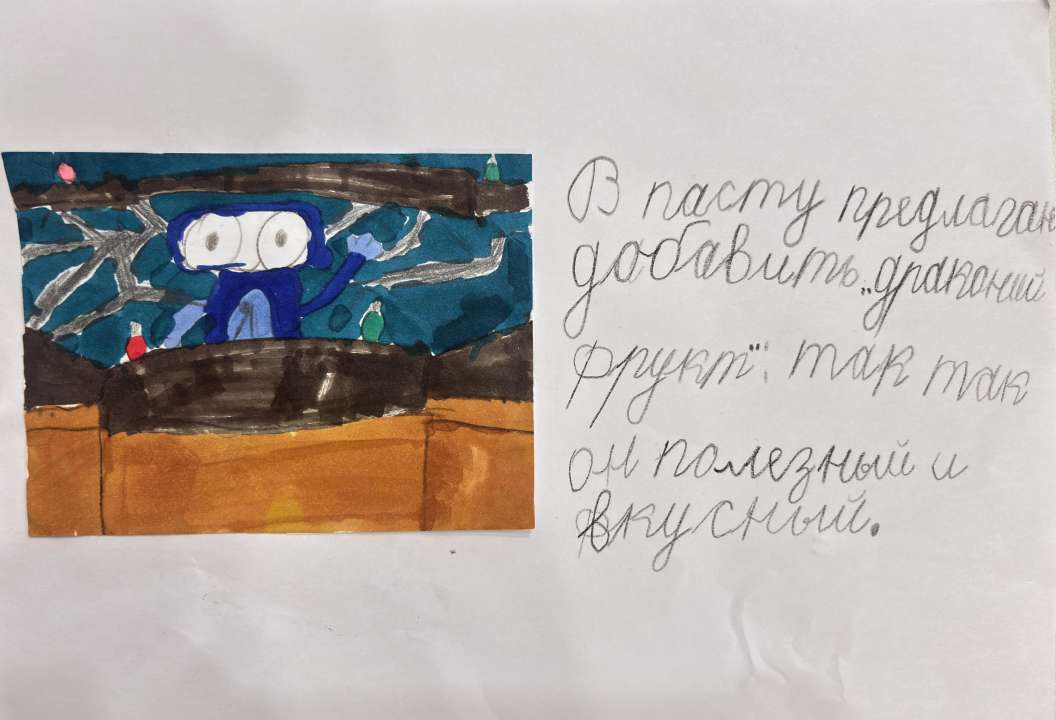 В пасту предлагаю
добавить „драконий
фрукт": так так
он полезный и
вкусный.